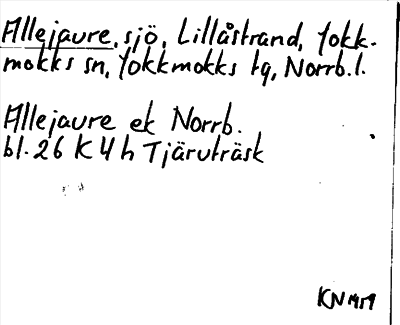 Allejaure, sjö, Lillåstrand, Jokk-
mokks sn, Jokkmokks tg, Norrb.l.
Allejaure ek Norrb.
bl. 26 K 4 h Tjäruträsk
KN